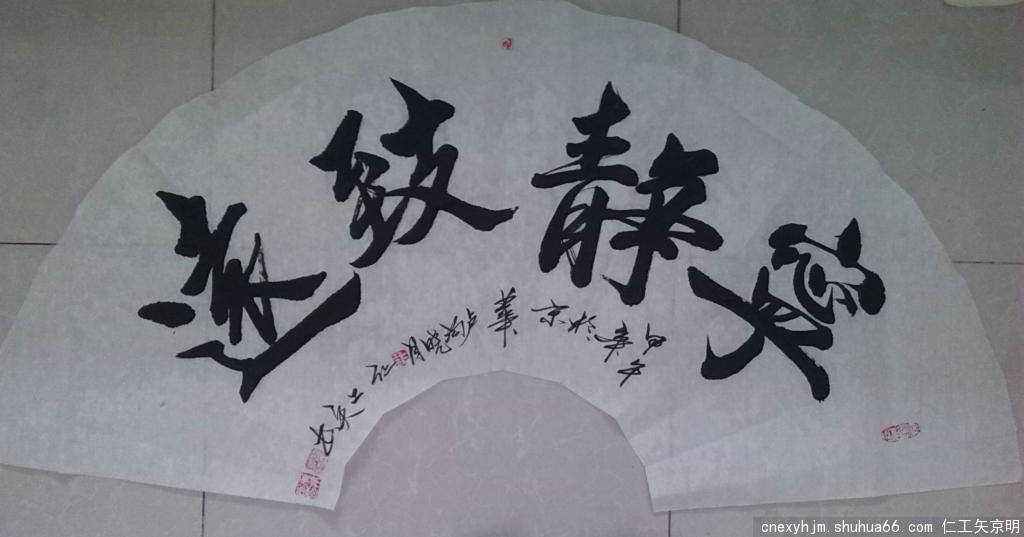 宁静致远
甲午春於京華卢沟晓月仁工矢書
cnexyhjm.shuhua66.com 仁工矢京明